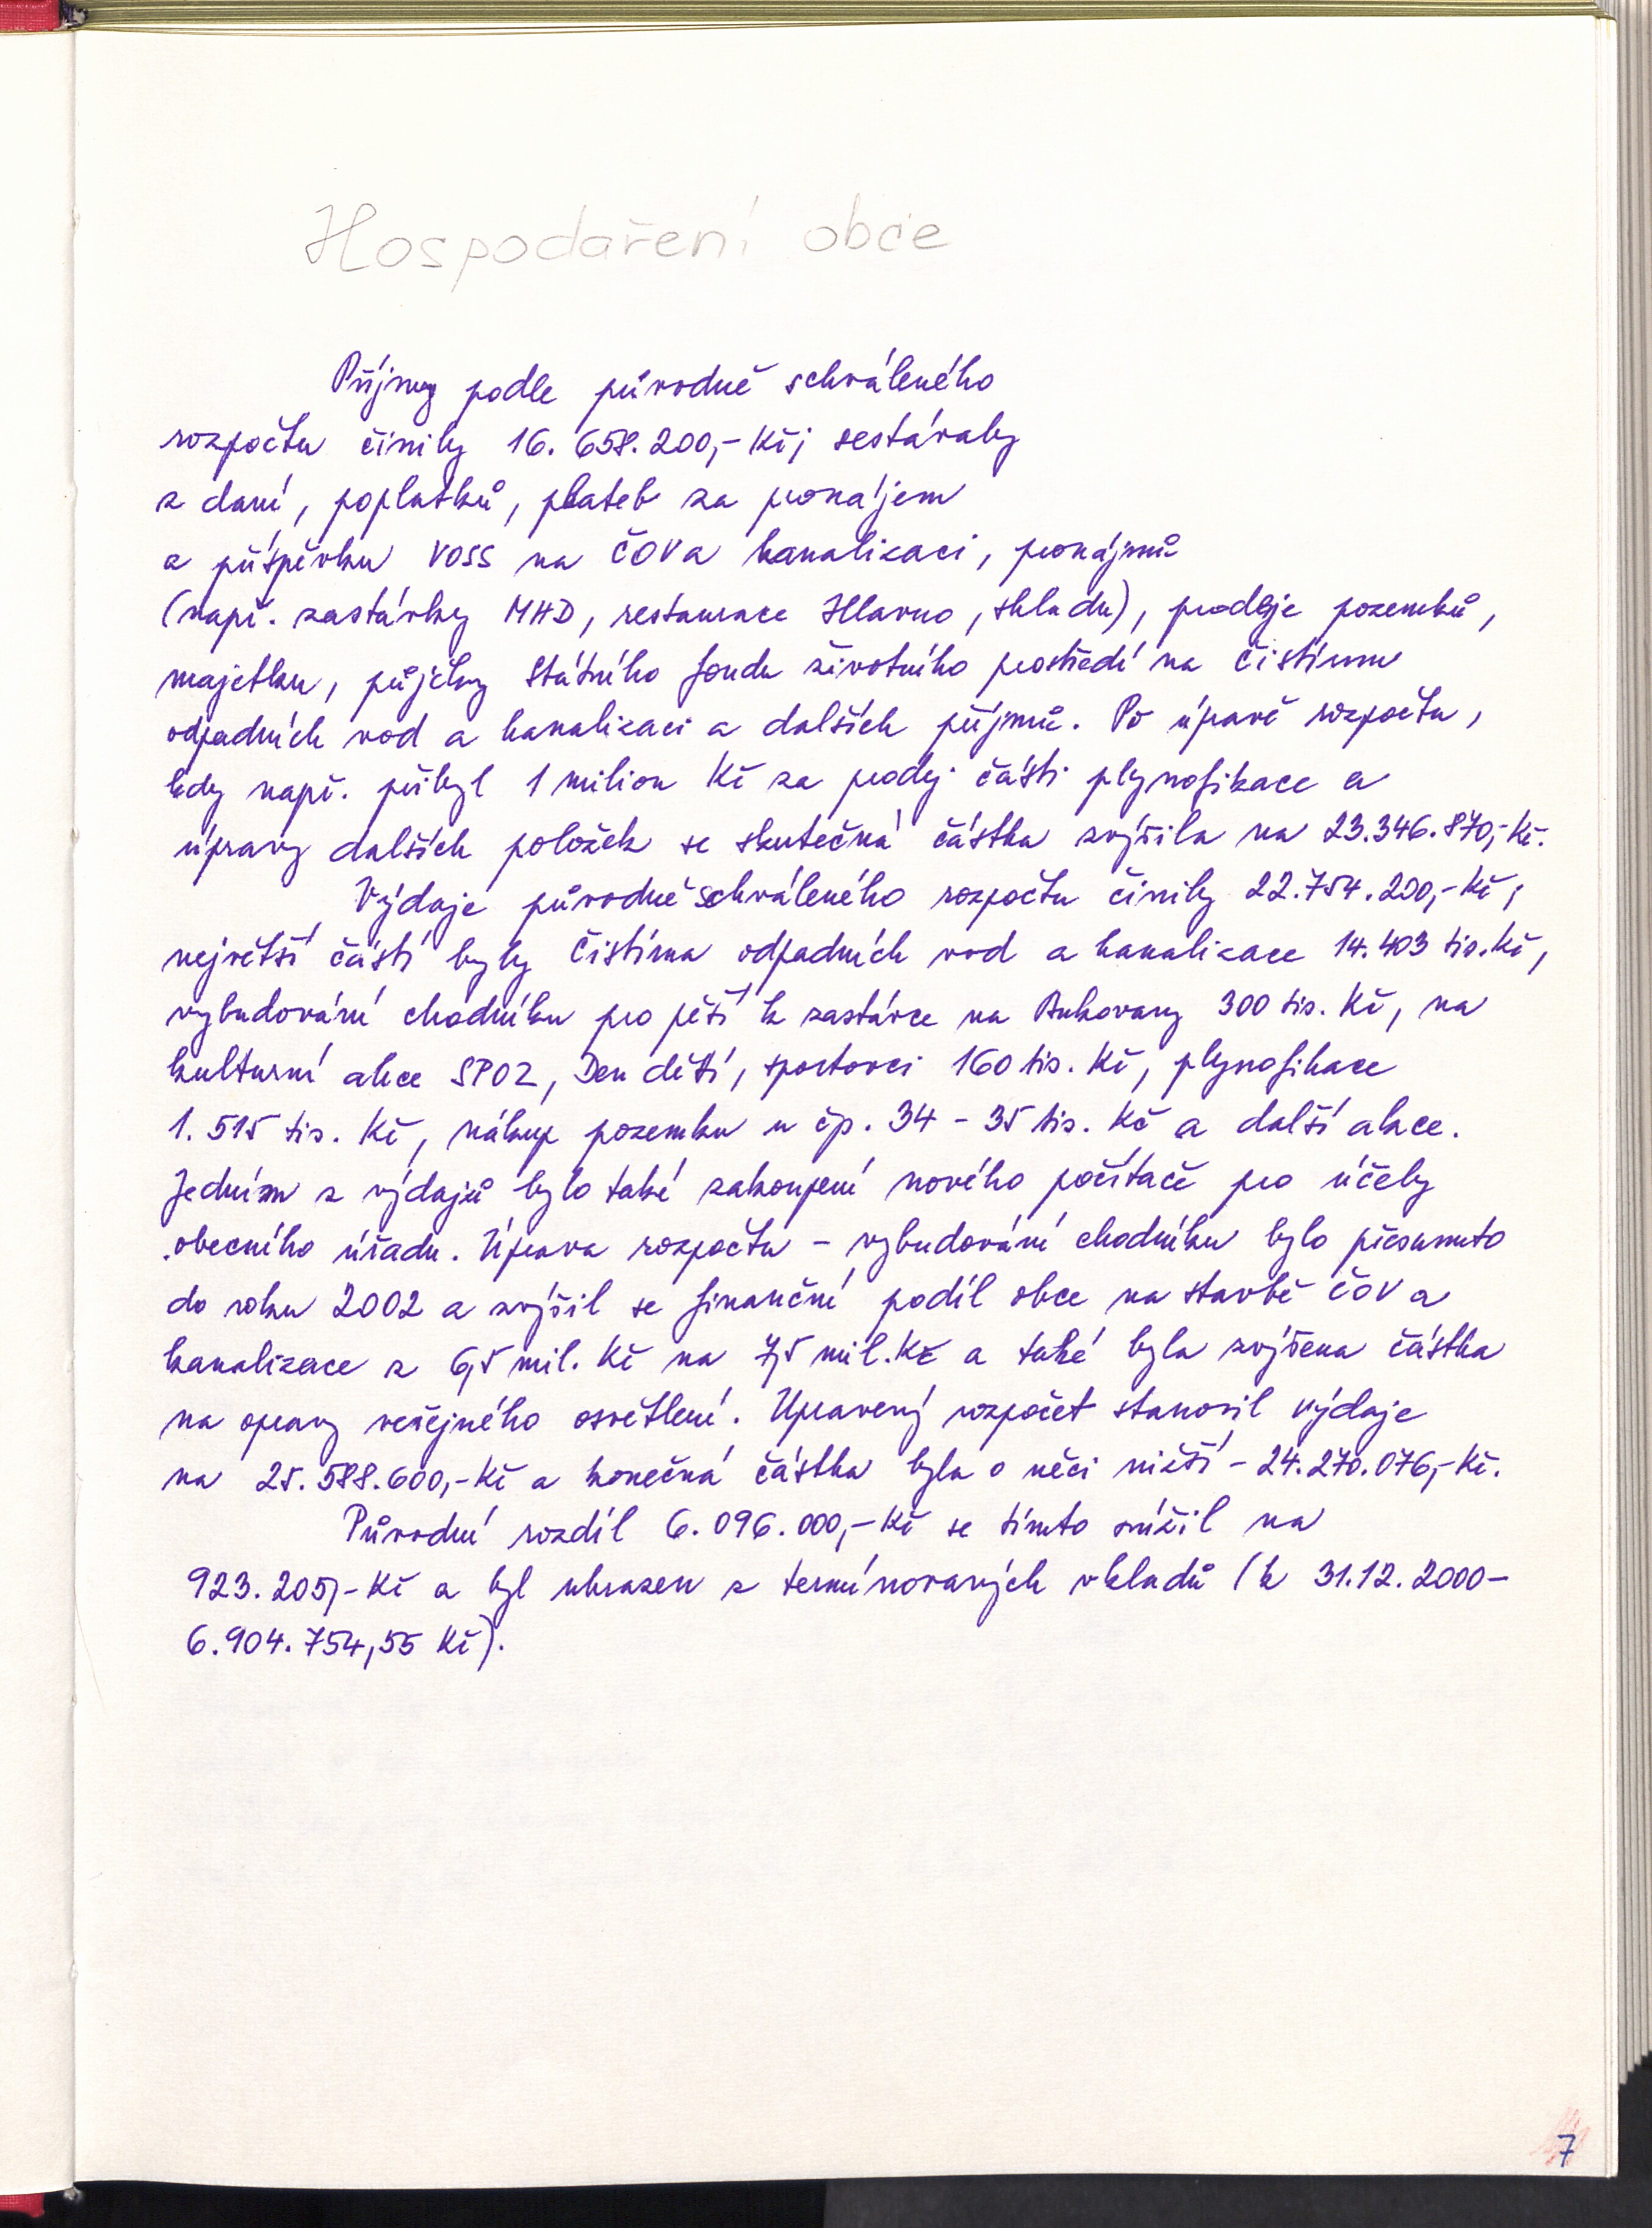 Hospodaření obce
Příjmy podle původně schváleného
rozpočtu činily 16.658.200,- Kč; sestávaly
z daní, poplatků, plateb za pronájem
a příspěvku VOSS na ČOV a kanalizaci, pronájmů
(např. zastávky MHD, restaurace Hlavno, skladu), prodeje pozemků,
majetku, půjčky Státního fondu životního prostředí na čistírnu
odpadních vod a kanalizaci a dalších příjmů. Po úpravě rozpočtu,
kdy např. přibyl 1 milion Kč za prodej části plynofikace a
úpravy dalších položek se skutečná částka zvýšila na 23.346.870,- Kč.
Výdaje původně schváleného rozpočtu činily 22.754.200,- Kč;
největší částí byly čistírna odpadních vod a kanalizace 14.403 tis. Kč,
vybudování chodníku pro pěší k zastávce na Bukovany 300 tis. Kč, na
kulturní akce SPOZ, Den dětí, sportovci 160 tis. Kč, plynofikace
1.515 tis. Kč, nákup pozemku u čp. 34 - 35 tis. Kč a další akce.
Jedním z výdajů bylo také zakoupení nového počítače pro účely
obecního úřadu. Úprava rozpočtu - vybudování chodníku bylo přesunuto
do roku 2002 a zvýšil se finanční podíl obce na stavbě ČOV a
kanalizace z 6,5 mil. Kč na 7,5 mil. Kč a také byla zvýšena částka
na opravy veřejného osvětlení. Upravený rozpočet stanovil výdaje
na 25.588.600,- Kč a konečná částka byla o něco nižší - 24.270.076,- Kč.
Původní rozdíl 6.096.000,- Kč se tímto snížil na
923.205,- Kč a byl uhrazen z termínovaných vkladů (k 31.12.2000 -
6.904.754,55 Kč).
7